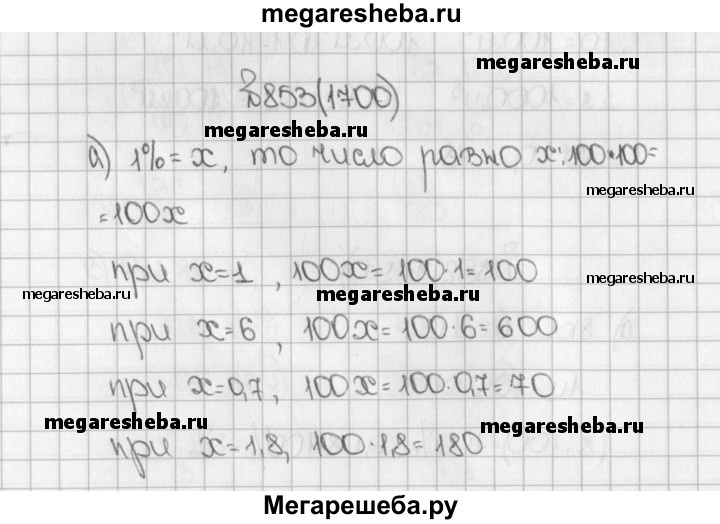 megaresheba.ru
megaresheba.ru
№853(1700)
megaresheba.ru
а) 1%=x, то число равно x:100·100=
megaresheba.ru
=100x
при x=1, 100x=100·1=100
megaresheba.ru
megaresheba.ru
megaresheba.ru
при x=6, 100x=100·6=600
при x=0,7, 100x=100·0,7=70
megaresheba.ru
megaresheba.ru
при x=1,8, 100·1,8=180
Мегарешеба.ру